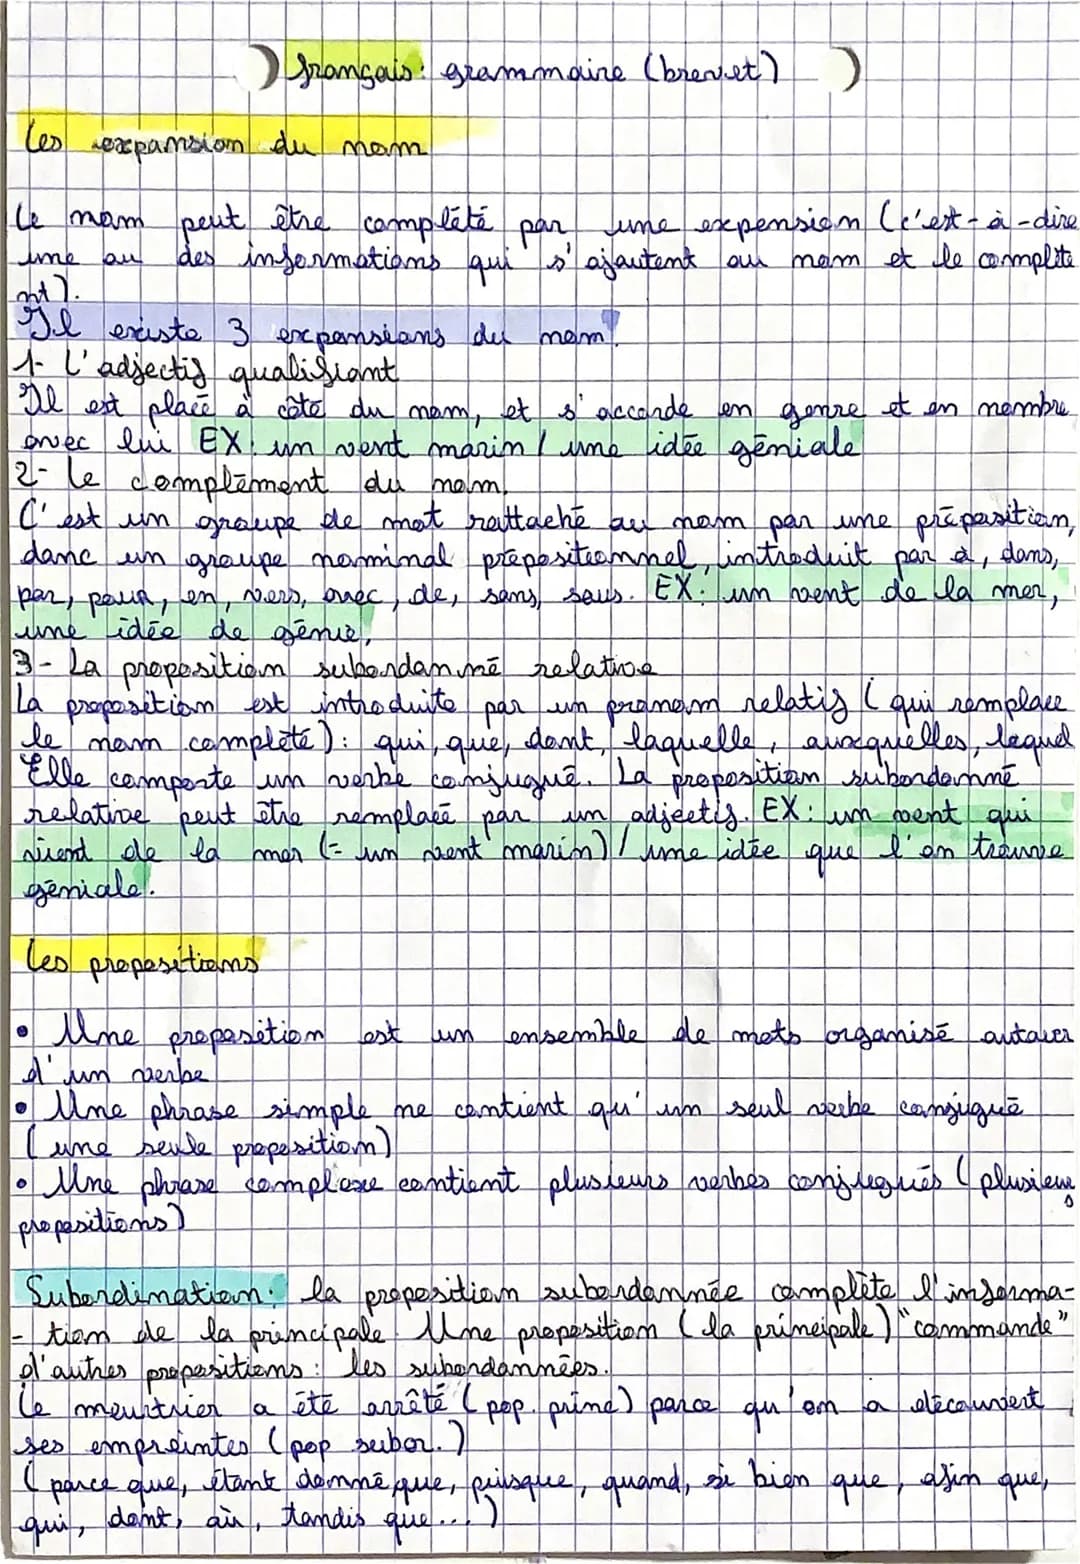 français: grammaire (brevet)
Les expansion du nom
Le nom peut être complété par une expension (c'est-à-dire
une ou des informations qui s'ajoutent au nom et le complète
nt).
Il existe 3 expansions du nom:
1- L'adjectif qualifiant
Il est placé à côté du nom, et s'accorde en genre et en nombre
avec lui EX: un vent marin / une idée géniale
2- Le complément du nom.
C'est un groupe de mot rattaché au nom par une préposition,
donc un groupe nominal prépositionnel, introduit par à, dans,
par, pour, en, vers, avec, de, sans, sous. EX: un vent de la mer,
une idée de génie,
3- La proposition subordonné relative
La proposition est introduite par un pronom relatif (qui remplace
le nom complété): qui, que, dont, laquelle, auxquelles, lequel
Elle comporte un verbe conjugué. La proposition subordonné
relative peut être remplacé par un adjectif. EX: un vent qui
vient de la mer (= un vent marin) / une idée que l'on trouve
géniale.
Les propositions
• Une proposition est un ensemble de mots organisé autour
d'un verbe
• Une phrase simple ne contient qu'un seul verbe conjugué
(une seule proposition)
• Une phrase complexe contient plusieurs verbes conjugués (plusieurs
propositions)
Subordination: la proposition subordonnée complète l'informa-
- tion de la principale. Une proposition (la principale) "commande"
d'autres propositions: les subordonnées.
Le meurtrier a été arrêté (pop. princ) parce qu'on a découvert
ses empreintes (pop subor.)
(parce que, étant donné que, puisque, quand, si bien que, afin que,
qui, dont, où, tandis que...)